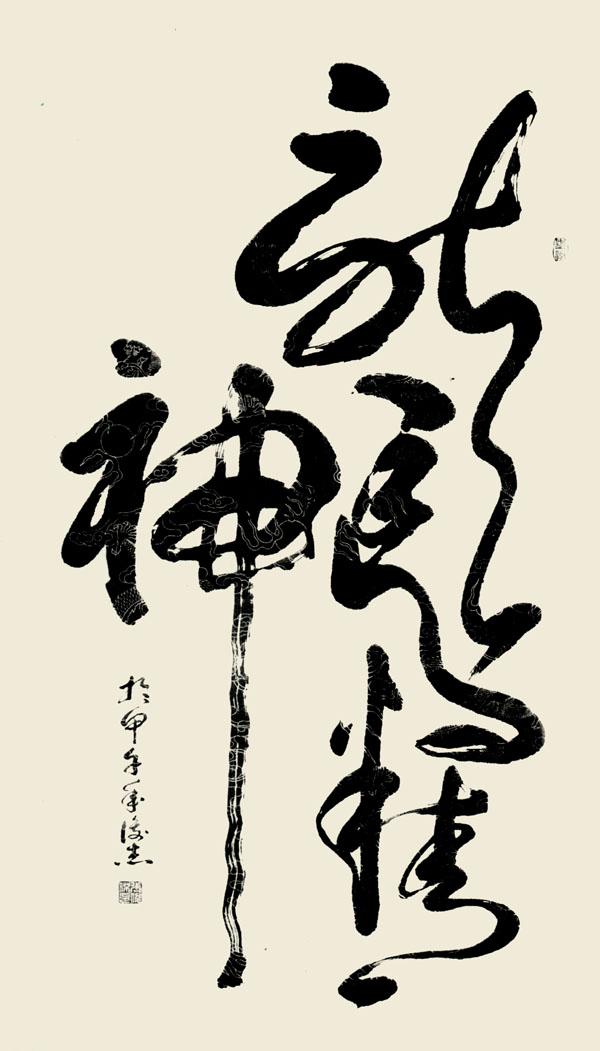 龍馬精
神
於甲午年